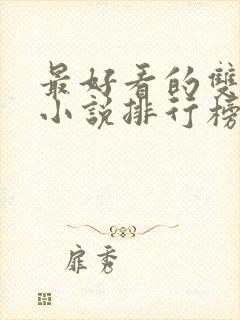 最好看的雙
小說排行榜
扉秀